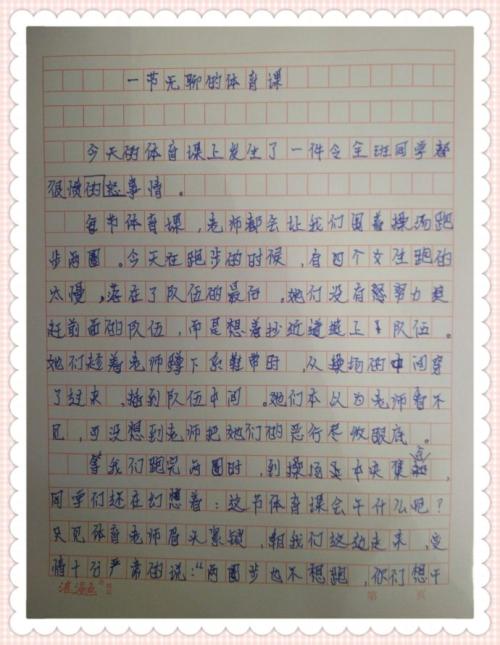 一节无聊的体育课
今天的体育课上发生了一件令全班同学都
很愤的怒事情。
每节体育课，老师都会让我们围着操场跑
步两圈。今天在跑步的时候，有四个女生跑的
太慢，落在了队伍的最后。她们没有努力
赶前面的队伍，而是想着抄近道追上队伍。
她们趁着老师蹲下系鞋带时，从操场的中间穿
了过来，插到队伍中间。她们本以为老师看不
见，可没想到老师把她们的恶行尽收眼底。
等我们跑完两圈时，到操场中央集合，
同学们还在幻想着：这节体育课会干什么呢？
只见体育老师眉头紧锁，朝我们这边走来，表
情十分严肃的说：“两圈步也不想跑，你们想干
第 页